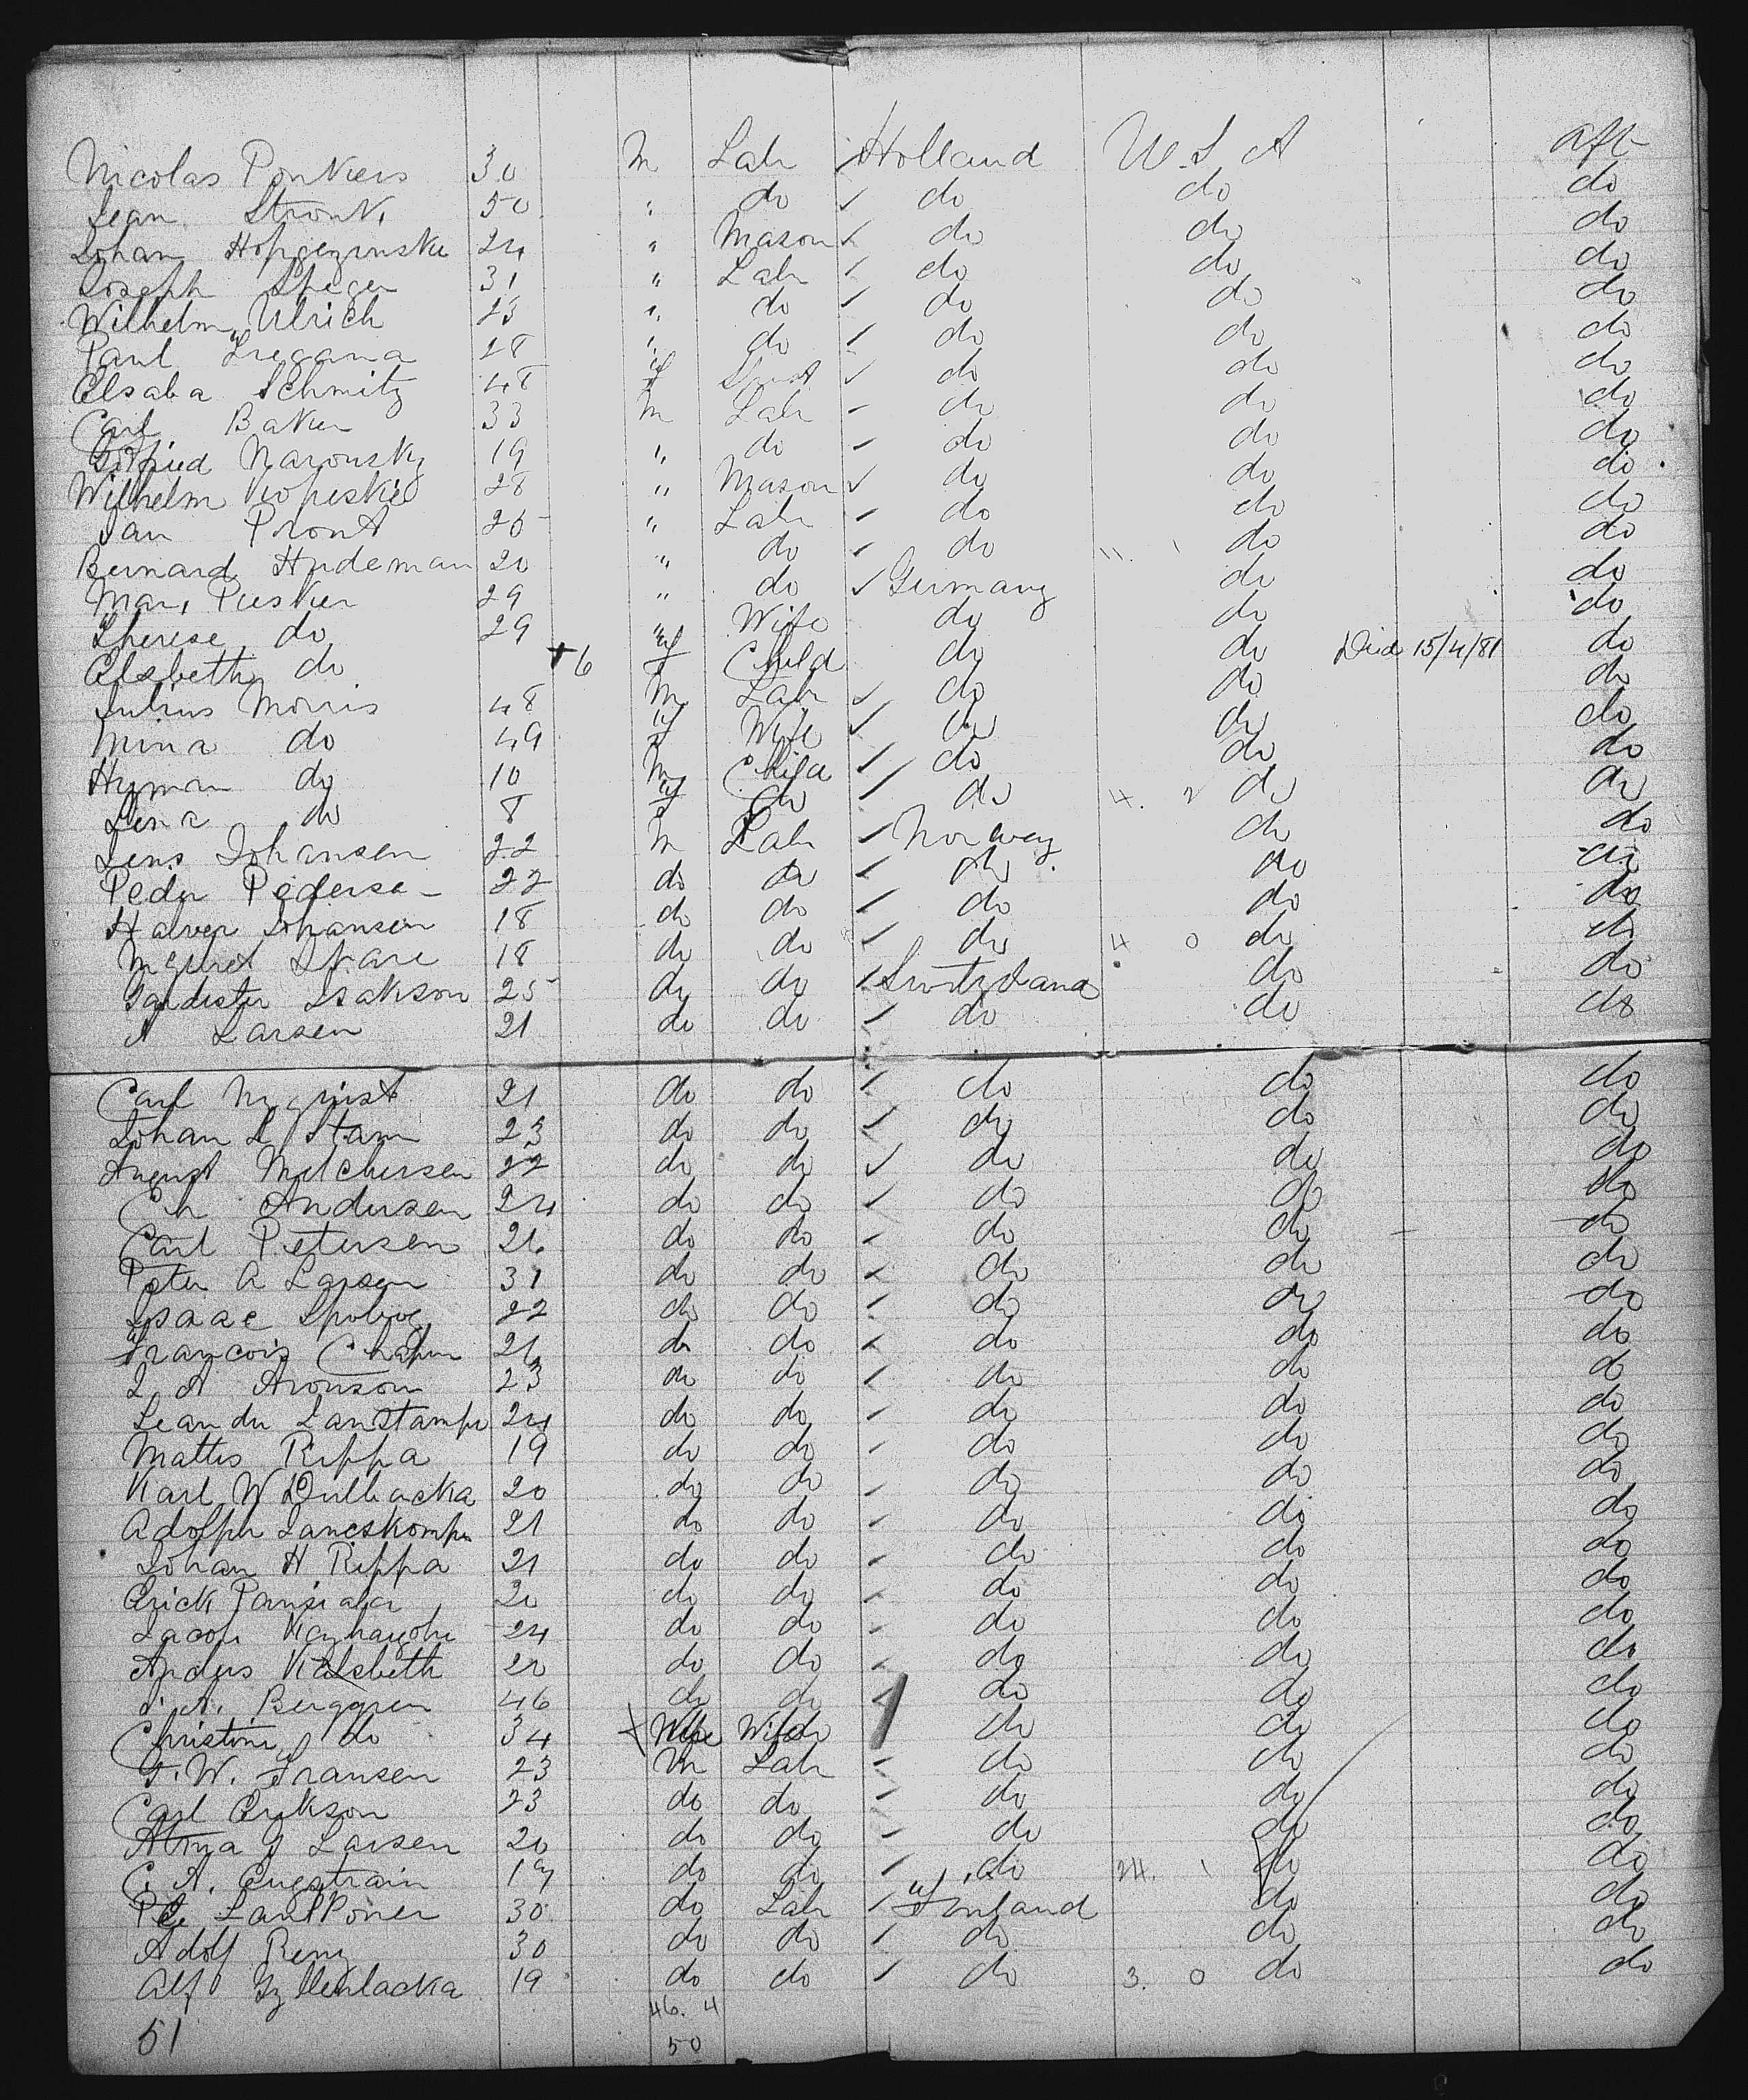 Nicolas Ponkers 30 M Lab Holland U.S.A aft
Jean Stronk 50 " do do do do
Johan Hopgezinske 24 " Mason do do do
Joseph Speger 31 " Lab do do do
Wilhelm Ulrich 23 " do do do do
Paul Gregana 28 " do do do do
Elsaba Schmitz 48 f do do do
Carl Baker 33 m Lab do do do
Gotfried Narousky 19 " do do do do
Wilhelm Kopeske 28 " Mason do do do
Jan Pront 25 " Lab do do do
Bernard Hudeman 20 " do do 11. 1 do do
Mari Pusker 29 " do Germany do do
Therese do 29 " Wife do do do
Elsbeth do 6 f Child do do Died 15/4/81 do
Julius Morris 48 M Lab do do do
Mina do 49 f Wife do do do
Hyman do 10 M Child do do do
Lena do 8 f do do 4. 2 do do
Jens Johansen 22 M Lab Norway do do
Peder Pedersen 22 do do do do do
Halver Johansen 18 do do do do do
Skare 18 do do do 4 0 do do
Isakson 25 do do Switzeland do do
A Larsen 21 do do do do do
Carl Nyquist 21 do do do do do
Johan L Stam 23 do do do do do
August Melchersen 22 do do do do do
Ch Andersen 24 do do do do do
Carl Petersen 26 do do do do do
Peter A Larsen 31 do do do do do
Isaac 22 do do do do do
Francois 21 do do do do do
J A Aronson 23 do do do do do
Leander Lanstampe 24 do do do do do
Mattis Rippa 19 do do do do do
Karl W Dullbacka 20 do do do do do
Adolph Laneskompe 21 do do do do do
Johan H Rippa 21 do do do do do
Erick Pansiala 20 do do do do do
Jacob 24 do do do do do
Anders Kalsbeth 20 do do do do do
J. A. Berggren 46 do do do do do
Christine do 34 Wife do do do
G. W. Fransen 23 M Lab do do do
Carl Erikson 23 do do do do do
Alma J Larsen 20 do do do do do
C. A. Engstrain 19 do do do 24. 1 do do
30 do Lab Finland do do
Adolf Reng 30 do do do do do
Alf Gyllenlacka 19 do do do 3. 0 do do
46. 4
51 50